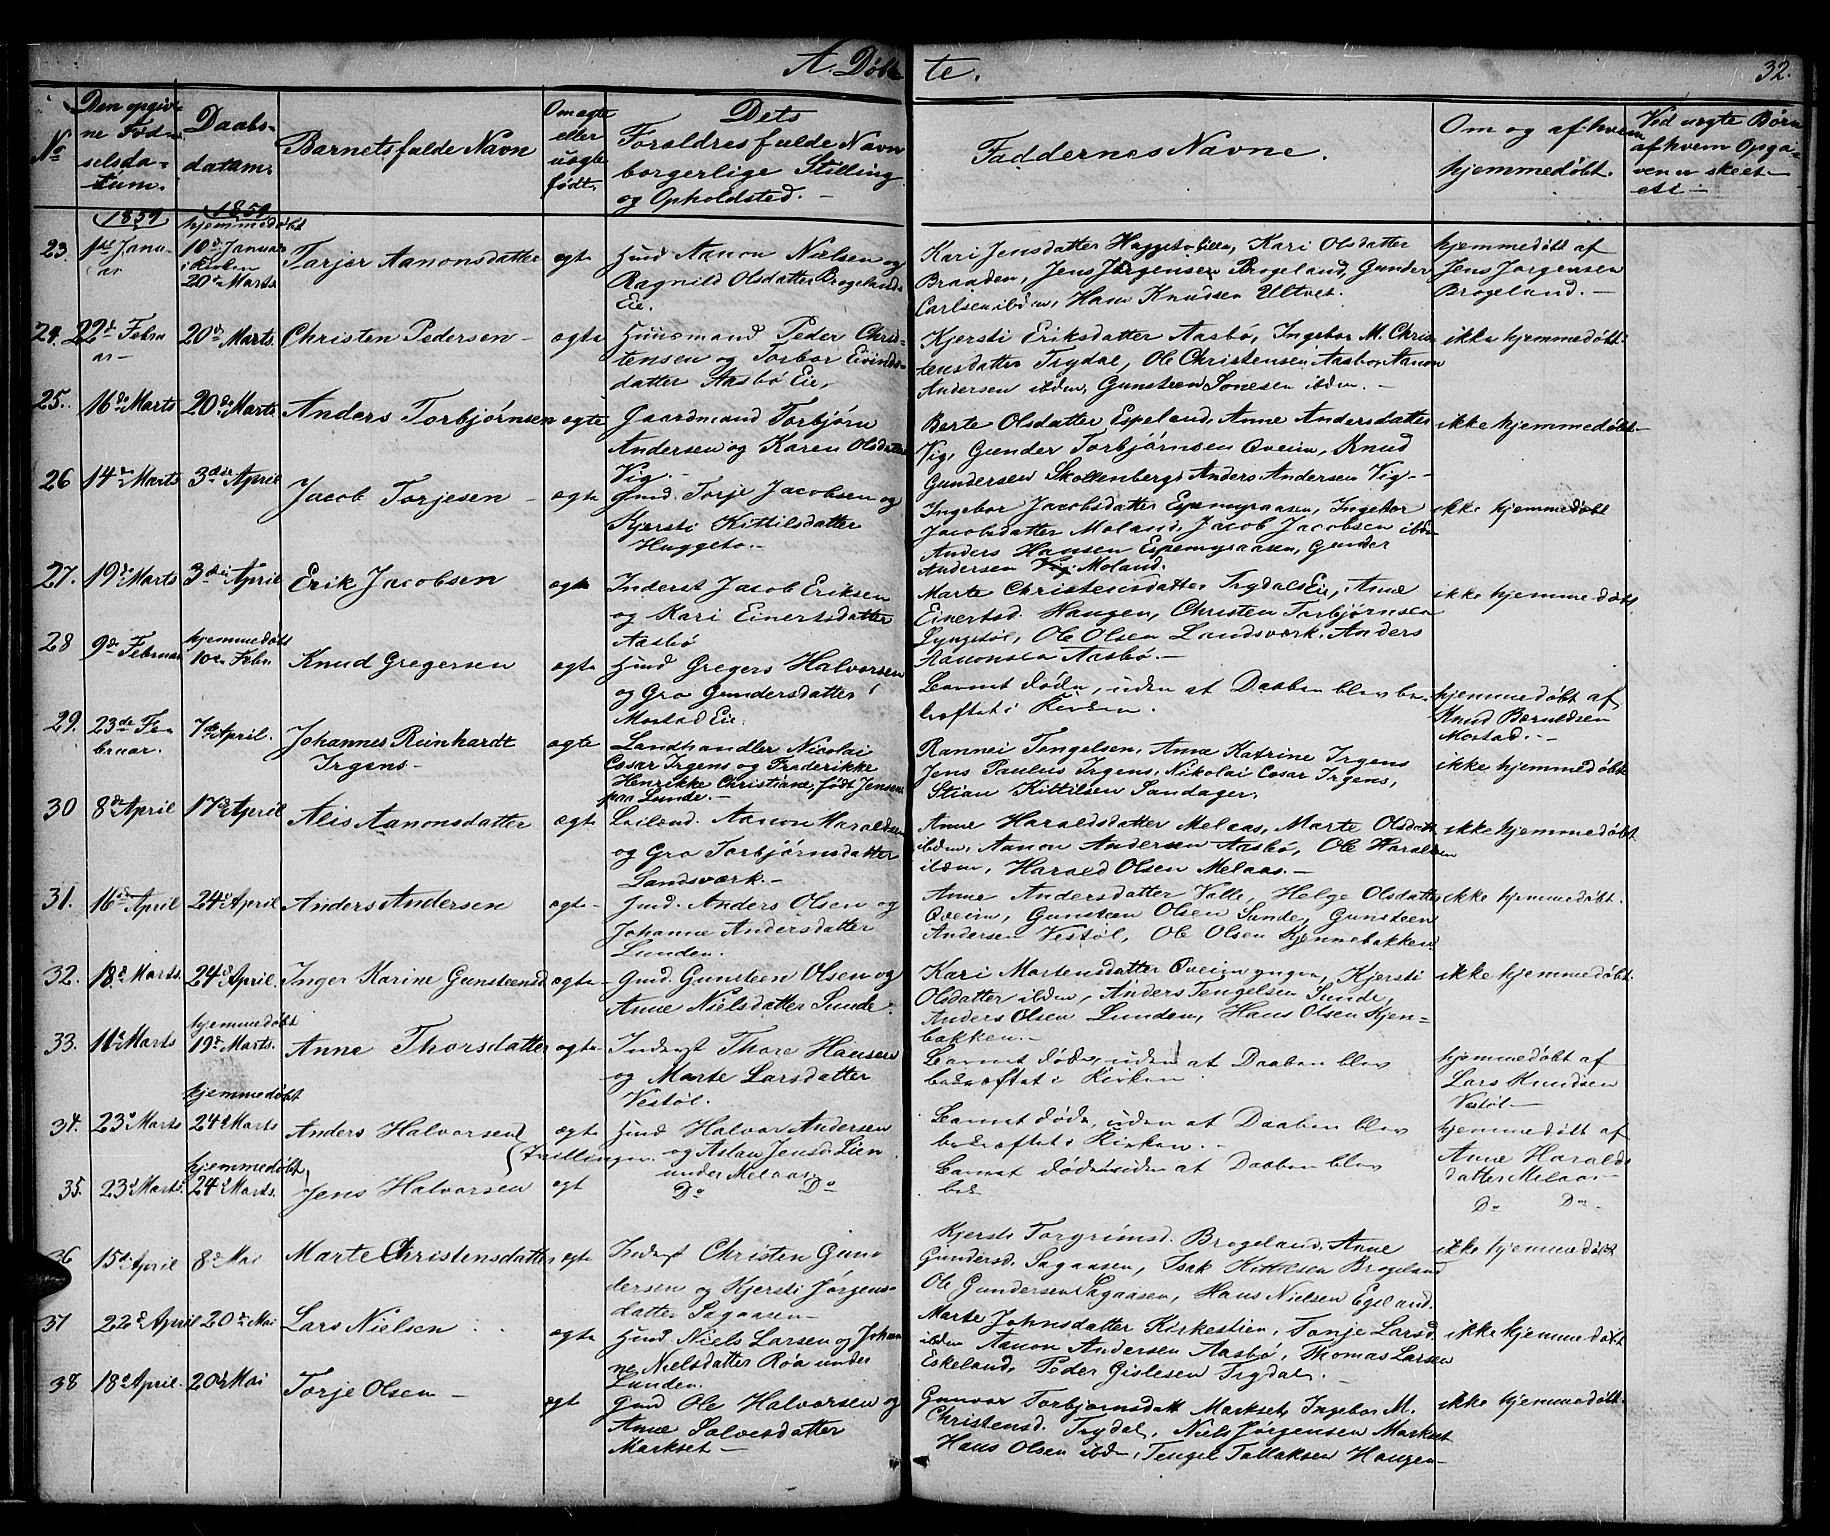 A. Døbte.
32.
No
Den opgivne Fødselsdatum.
Daabsdatum.
Barnets fulde Navn
Om ægte eller uægte født.
Dets Forældres fulde Navn borgerlige Stilling og Opholdsted.
Faddernes Navne.
Om og af hvem hjemmedøbt.
Ved uægte Børn af hvem Opgaven er skeet
1859
1859
23. 1ste Januar
hjemmedøbt 10de Januar i Kirken 20de Marts
Torjer Aanonsdatter
ægte
Huusmd Aanon Nielsen og
Ragnild Olsdatter Brogelands
Eie.
Kari Jensdatter Huggeto, Kari Olsdatter
Braaden, Jens Jørgensen Brogeland, Gunder
Carlsen ibden, Hans Knudsen Ultvet.
hjemmedøbt af
Jens Jørgensen
Brogeland.
24. 22de Februar
20de Marts.
Christen Pedersen
ægte
Huusmand Peder Christensen og Torbor Eivindsdatter Aasbø Eie,
Kjersti Eriksdatter Aasbø, Ingebor M. Christensdatter Trydal, Ole Christensen Aasbø, Aanon
Andersen ibden, Gunsteen Sonesen ibden.
ikke hjemmedøbt
25. 16de Marts
20de Marts
Anders Torbjørnsen
ægte
Gaardmand Torbjørn
Andersen og Karen Olsdatter
Vig.
Berte Olsdatter Espeland, Anne Andersdatter
Vig, Gunder Torbjørnsen Qveim, Knud
Gundersen Skoltenberg, Anders Andersen Vig
ikke hjemmedøbt
26 14de Marts
3die April
Jacob Torjesen
ægte
Gmd. Torje Jacobsen og
Kjersti Kittilsdatter
Huggeto.
Ingebor Jacobsdatter Espemyraasen, Ingebor
Jacobsdatter Moland, Jacob Jacobsen ibdn
Anders Hansen Espemyraasen, Gunder
Andersen Vig Moland.
ikke hjemmedøbt
27. 19de Marts
3die April
Erik Jacobsen
ægte
Inderst Jacob Eriksen
og Kari Einertsdatter
Aasbø
Marte Christensdatter Trydals Eie, Anne
Einertsd. Haugen, Christen Torbjørnsen
Lyngstøl, Ole Olsen Landsverk, Anders
Aanonsen Aasbø.
ikke hjemmedøbt
28 9de Februar
hjemmedøbt 10de Febr.
Knud Gregersen
ægte
Hmd Gregers Halvorsen
og Gro Gundersdatter
Mostad Eie.
Barnet døde, uden at Daaben blev bekræftet i Kirken.
hjemmedøbt af
Knud Berntdsen
Mostad.
29. 23de Februar.
7de April.
Johannes Reinhardt
Irgens
ægte
Landhandler Nicolai
Cæsar Irgens og Frederikke
Henrikke Christiane, født Jensen
paa Lunde.
Rannei Tengelsen, Anne Katrine Irgens
Jens Paulus Irgens, Nikolai Cæsar Irgens,
Stian Kittilsen Sandager.
ikke hjemmedøbt
30 8de April
17de April
Alis Aanonsdatter
ægte
Leilænd. Aanon Haraldsen
og Gro Torbjørnsdatter
Landsværk.
Anne Haraldsdatter Melaas, Marte Olsdatt
ibden, Aanon Andersen Aasbø, Ole Haraldsen
ibden, Harald Olsen Melaas.
ikke hjemmedøbt.
31. 16de April
24de April
Anders Andersen
ægte
Hmd. Anders Olsen og
Johanne Andersdatter
Lunden.
Anne Andersdatter Valle, Helge Olsdatter
Qveim, Gunsteen Olsen Sunde, Gunsteen
Andersen Vestøl, Ole Olsen Kjennebakken
ikke hjemmedøbt.
32. 18de Marts.
24de April.
Inger Karine Gunsteensd
ægte
Gmd. Gunsteen Olsen og
Anne Nielsdatter Sunde.
Kari Mortensdatter Qveim yngre, Kjersti
Olsdatter ibden, Anders Tengelsen Sunde,
Anders Olsen Lunden, Hans Olsen Kjenbakken.
ikke hjemmedøbt
33. 11te Marts
hjemmedøbt 19de Marts.
Anne Thorsdatter
ægte
Inderst Thore Hansen
og Marte Larsdatter
Vestøl.
Barnet døde, uden at Daaben blev
bekræftet i Kirken
hjemmedøbt af
Lars Knudsen
Vestøl
34. 23de Marts
hjemmedøbt 24de Marts
Anders Halvorsen
Tvillinger.
ægte
Hmd Halvor Andersen
og Aslau Jensd. Lien
under Melaas
Barnet døde, uden at Daaben blev
bekræftet i Kirken.
hjemmedøbt af
Anne Haraldsdatter Melaas
35. 23de Marts.
hjemmedøbt 24de Marts.
Jens Halvorsen
ægt
Do Do
Barnet døde uden at Daaben blev
bek
Do Do
36 15de April
8de Mai
Marte Christensdatter
ægte
Inderst Christen Gundersen og Kjersti Jørgensdatter Sagaasen
Kjersti Torgrimsd. Brogeland, Anne
Gundersd. Sagaasen, Isak Kittilsen Brogeland
Ole Gundersen Sagaasen, Hans Nielsen Egeland.
ikke hjemmedøbt
37 22de April
20de Mai
Lars Nielsen
ægte
Hmd. Niels Larsen og Johanne Nielsdatter Røa under
Lunden.
Marte Johnsdatter Kirkestien, Tonje Larsd.
ibden Aanon Andersen Aasbø, Thomas Larsen
Eskeland, Peder Gislesen Trydal.
ikke hjemmedøbt
38 18de April.
20de Mai
Torje Olsen
ægt
Gmd Ole Halvorsen og
Anne Solvesdatter
Markset
Gunvor Torbjørnsdatt Markset, Ingebor M.
Christensd. Trydal, Niels Jørgensen Markset
Hans Olsen ibden, Tengel Tallaksen Haugen
ikke hjemmedøbt